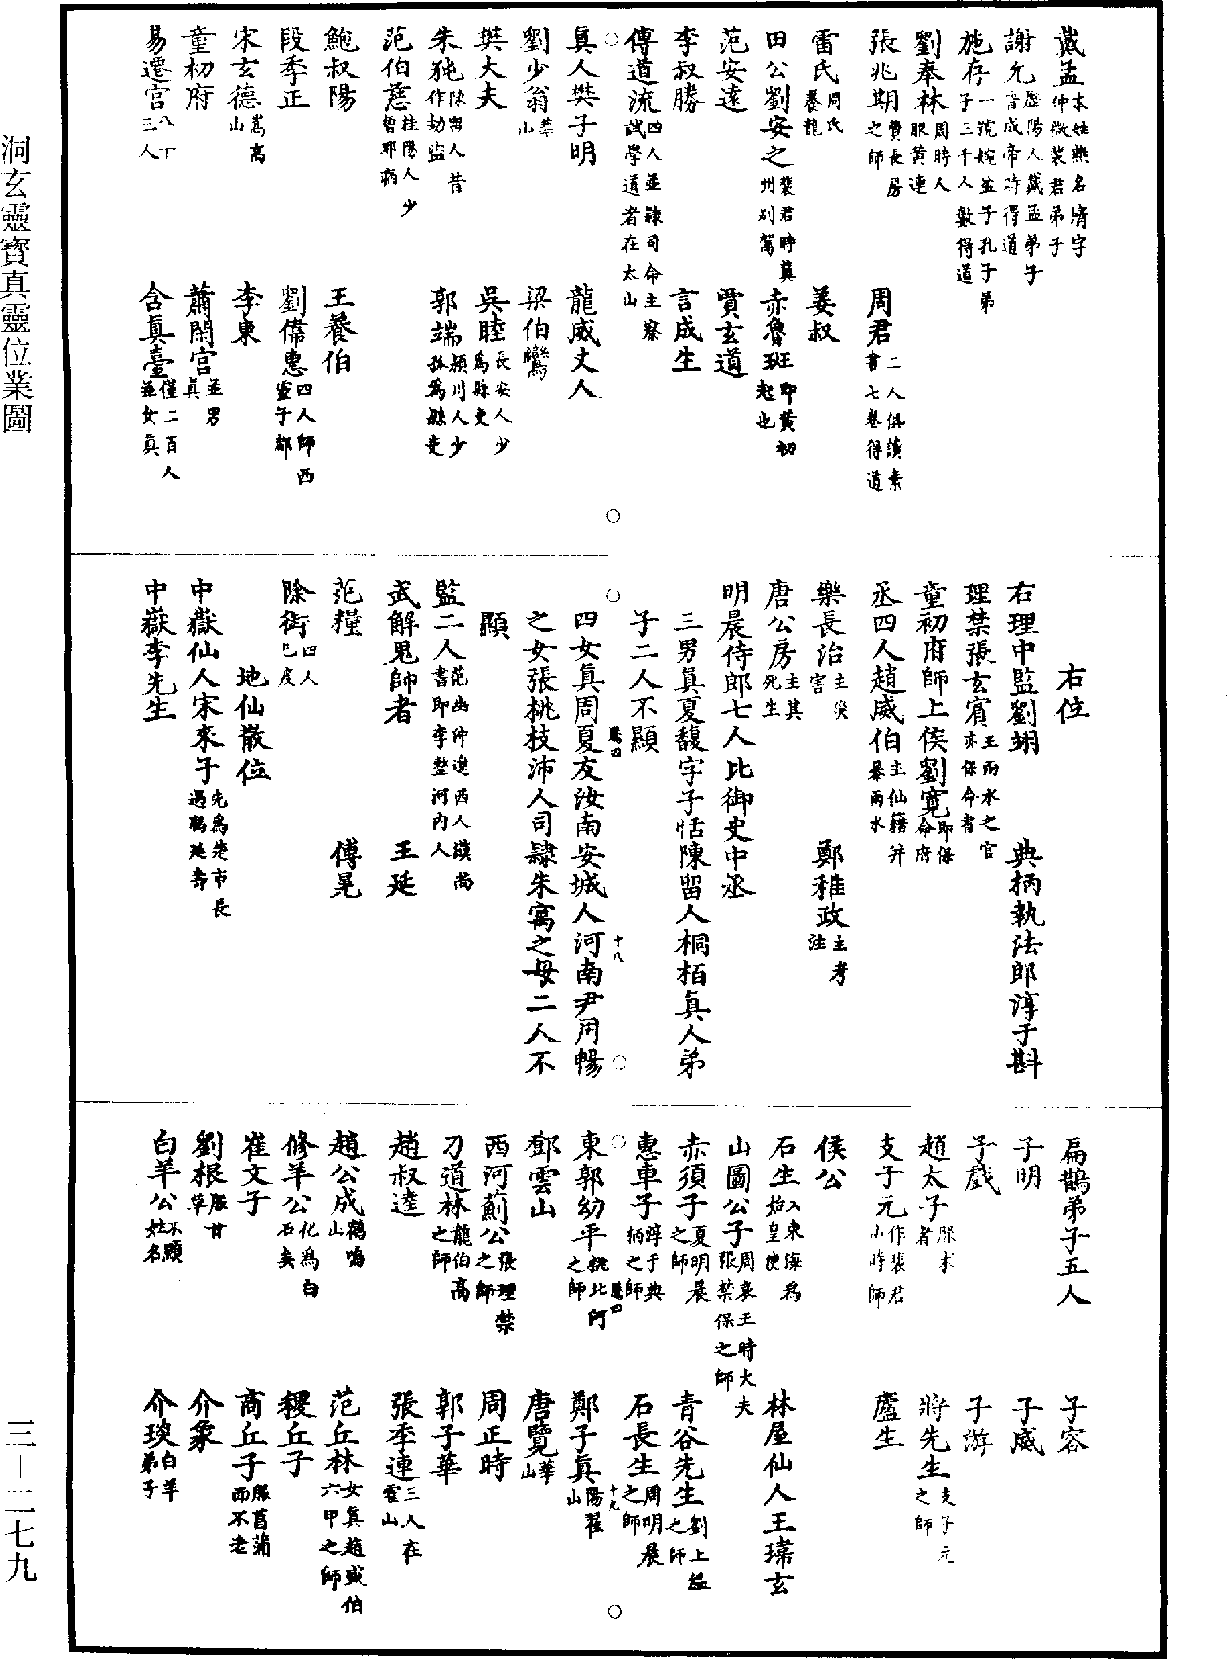 戴孟本姓燕名濟字仲微裴君弟子
謝允歷陽人戴孟弟子晉成帝時得道
施存一號婉盆子孔子弟子三千人數得道
劉奉林周時人服黃連
張兆期費長房之師　周君二人俱讀素書七卷得道
雷氏周氏養龍　姜叔
田公劉安之裴君時冀州別駕　赤魯班即黃初起也
范安遠　賈玄道
李叔勝　言成生
傅道流四人並隸司命主察試學道者在太山
真人樊子明　龍威丈人
劉少翁華山　梁伯鸞
樊大夫　吳睦長安人少為縣吏
朱㹠陳留人昔作劫盜　郭端潁川人少孤為縣吏
范伯慈桂陽人少曾邪病
鮑叔陽　王養伯
段季正　劉偉惠四人師西靈子都
宋玄德嵩高山　李東
童初府　蕭閑宮並男真
易遷宮八十三人　含真臺僅二百人並女真
右位
右理中監劉翊　典柄執法郎淳于斟
理禁張玄賓主雨水之官亦保命者
童初府師上侯劉寬即保命府
丞四人趙威伯主仙籍并暴雨水
樂長治主災害　鄭稚政主考注
唐公房主其死生
明晨侍郎七人比御史中丞
三男真夏馥字子恬陳留人桐栢真人弟
子二人不顯
四女真周夏友汝南安城人河南尹周暢
之女張桃枝沛人司隸朱寓之母二人不
顯
監二人范幽沖遼西人漢尚書郎李整河內人
武解鬼帥者　王延
范糧　傅晃
除街四人已度
地仙散位
中嶽仙人宋來子先為楚市長遇馮延壽
中嶽李先生
扁鵲弟子五人　子容
子明　子威
子戲　子游
趙太子服朮者　將先生支子元之師
支子元作裴君小時師　廬生
侯公
石生入東海為始皇使　林屋仙人王瑋玄
山圖公子周哀王時大夫張禁保之師
赤須子夏明晨之師　青谷先生劉上監之師
惠車子淳于典柄之師　石長生周明晨之師
東郭幼平桃北河之師　鄭子真陽翟山
鄧雲山　唐覽華山
西河薊公張理禁之師　周正時
刁道林龍伯高之師　郭子華
趙叔逵　張季連三人在霍山
趙公成鶴鳴山　范丘林女真趙威伯六甲之師
修羊公化為白石矣　稷丘子
崔文子　商丘子服菖蒲而不老
劉根服甘草　介象
白羊公不顯姓名　介琰白羊弟子
洞玄靈寶真靈位業圖
三—二七九